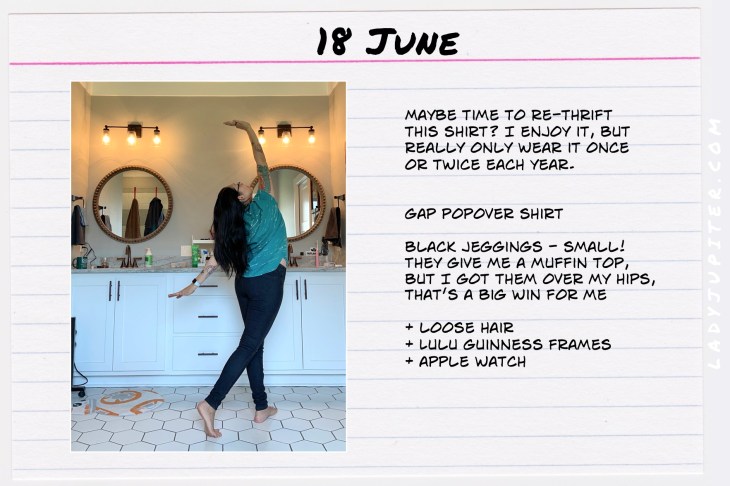 18 June
MAYBE TIME TO RE-THRIFT
THIS SHIRT? I ENJOY IT, BUT
REALLY ONLY WEAR IT ONCE
OR TWICE EACH YEAR.
GAP POPOVER SHIRT
BLACK JEGGINGS - SMALL!
THEY GIVE ME A MUFFIN TOP,
BUT I GOT THEM OVER MY HIPS,
THAT'S A BIG WIN FOR ME
+ LOOSE HAIR
+ LULU GUINNESS FRAMES
+ APPLE WATCH
LADYJUPITER.COM